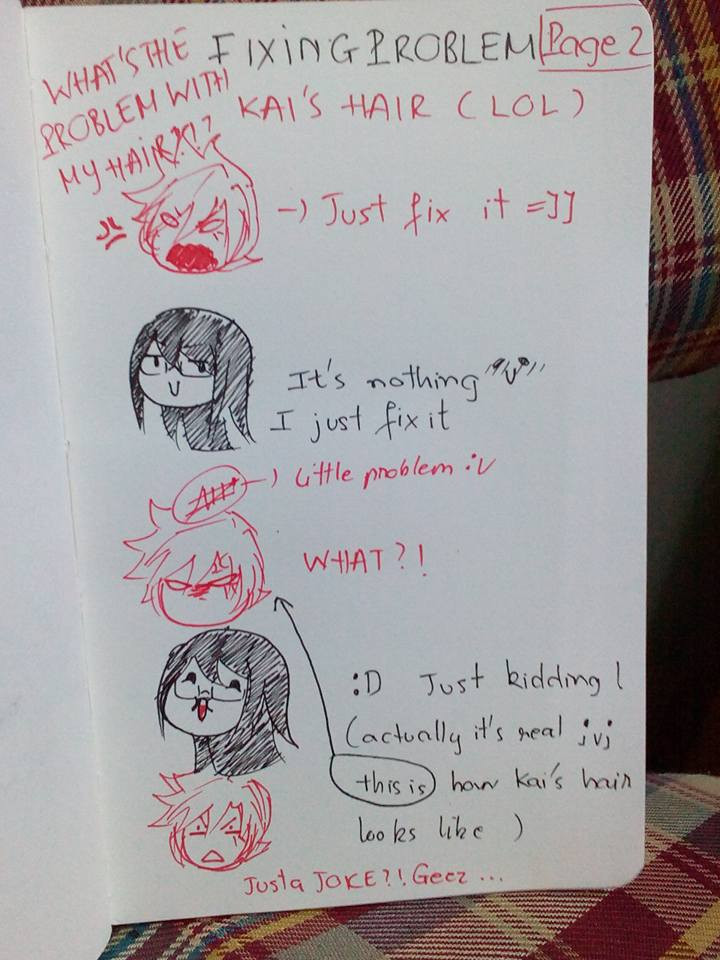 FIXING PROBLEM
Page 2
KAI'S HAIR (LOL)
WHAT'S THE
PROBLEM WITH
MY HAIR?!?
-) Just fix it =]]
It's nothing "v"
I just fix it
-) Little problem :v
WHAT?!
:D Just kidding!
(actually it's real ;v;
this is how Kai's hair
looks like )
Just a JOKE?! Geez ...